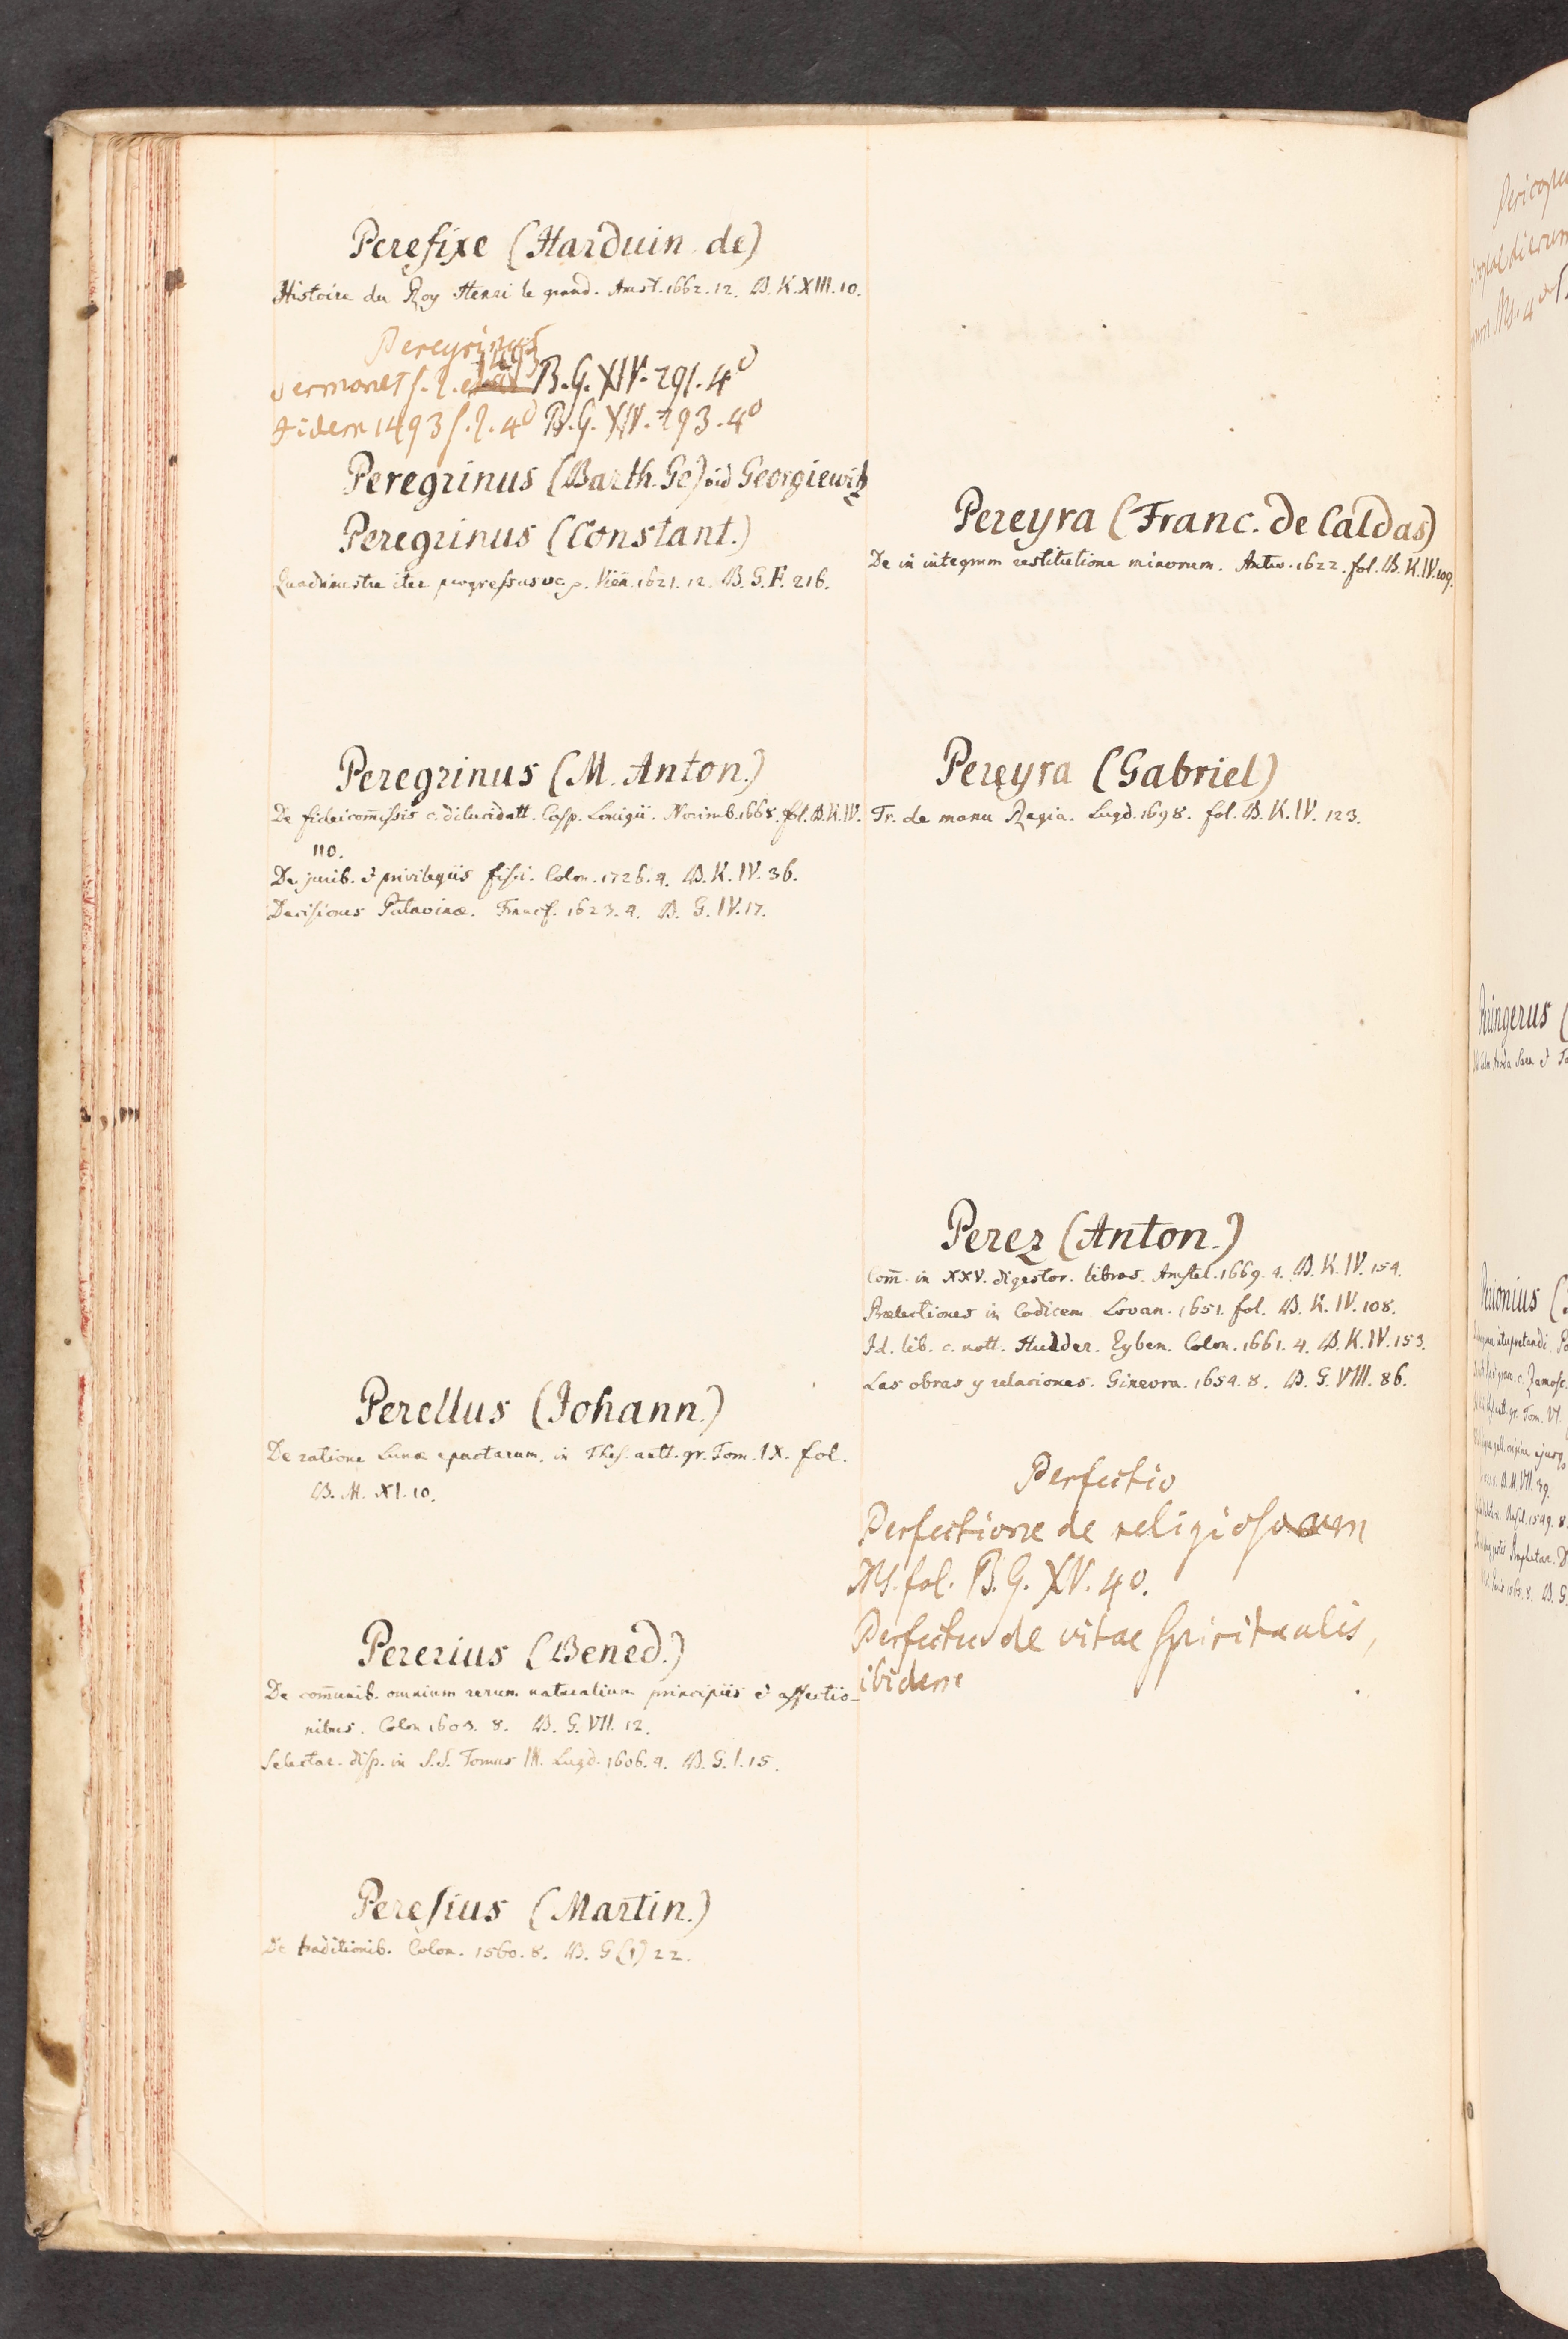 Perefixe (Harduin de)
Histoire du Roy Henri le grand. Amst. 1662. 12. B. K. XIII. 10.
Peregrinus
Sermones s. l. 1493 B. G. XIV. 291. 4º
Iidem 1493 s. l. 4º B. G. XIV. 293. 4º
Peregrinus (Barth. Ge) vid Georgiewitz
Peregrinus (Constant.)
Quadrimestre iter progressusqe p. Vien̄. 1621. 12. B. G. F. 216.
Peregrinus (M. Anton.)
De fideicom̄issis c. dilucidatt. Casp. Lonigii. Norimb. 1668. fol. B. K. IV.
110.
De jurib. & privilegiis fisci. Colon. 1726. 4. B. K. IV. 36.
Decisiones Patavinæ. Francf. 1623. 4. B. G. IV. 17.
Perellus (Johann.)
De ratione Lunæ epactarum, in Thes. antt. gr. Tom. IX. fol.
B. M. XI. 10.
Pererius (Bened.)
De com̄unib. omnium rerum naturalium principiis & affectio-
nibus. Colon 1603. 8. B. G. VII. 12.
Selectar. disp. in S. S. Tomus III. Lugd. 1606. 4. B. G. I. 15.
Peresius (Martin.)
De traditionib. Colon. 1560. 8. B. G (I) 22.
Pereyra (Franc. de Caldas)
De in integrum restitutione minorum. Antw. 1622. fol. B. K. IV. 109.
Pereyra (Gabriel)
Tr. de manu Regia. Lugd. 1698. fol. B. K. IV. 123.
Perez (Anton.)
Com̄. in XXV. digestor. libros. Amstel. 1669. 4. B. K. IV. 154.
Prælectiones in Codicem Lovan. 1651. fol. B. K. IV. 108.
Id. lib. c. nott. Hulder. Eyben. Colon. 1661. 4. B. K. IV. 153.
Las obras y relaciones. Ginevra. 1654. 8. B. G. VIII. 86.
Perfectio
Perfectione de religiosorum
MS. fol. B. G. XV. 40.
Perfectu de vitae spiritualis,
ibidem